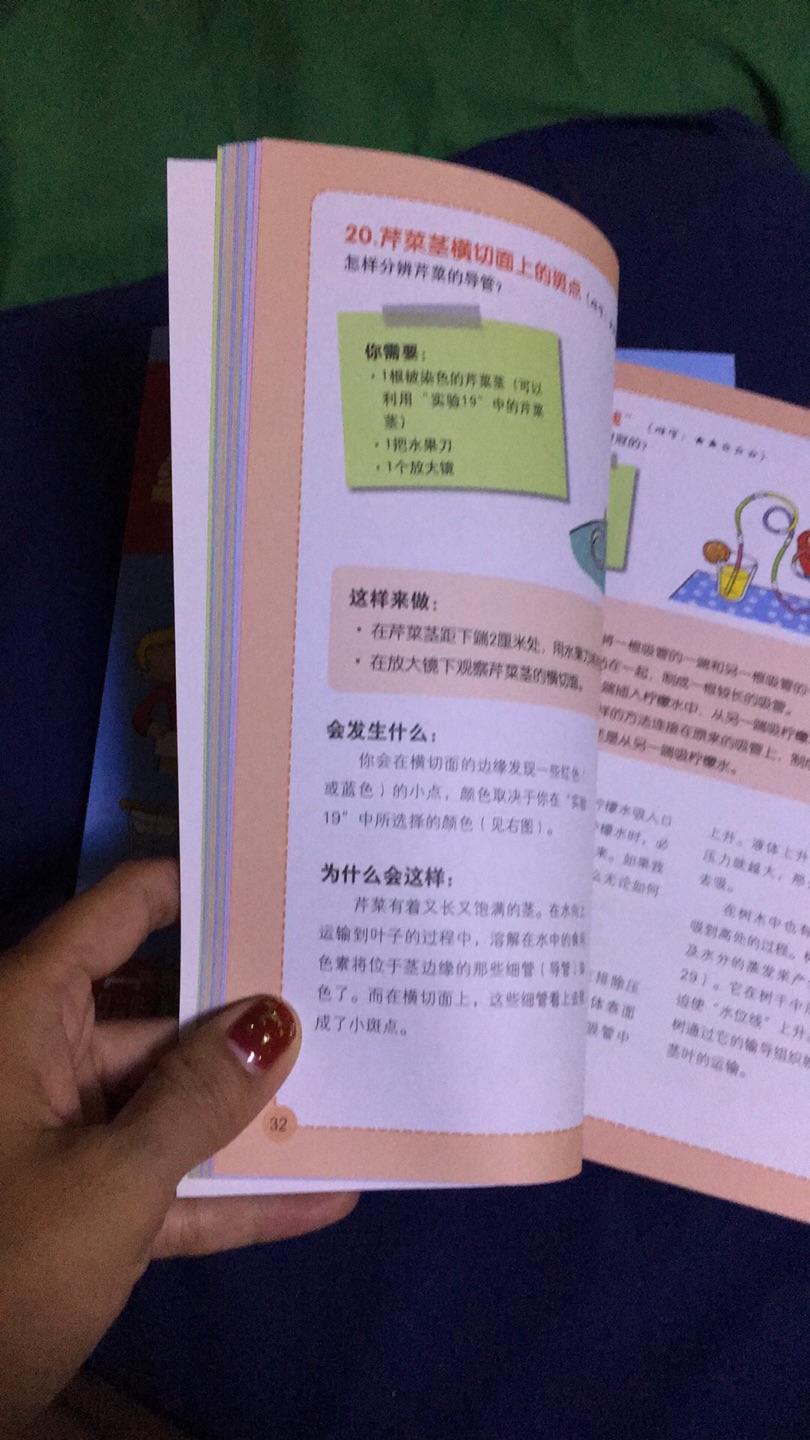 20.芹菜茎横切面上的斑点
怎样分辨芹菜的导管？
你需要：
·1根被染色的芹菜茎（可以
利用“实验19”中的芹菜
茎）
·1把水果刀
·1个放大镜
这样来做：
·在芹菜茎距下端2厘米处，用水果刀
·在放大镜下观察芹菜茎的横切面。
会发生什么：
你会在横切面的边缘发现一些红色（
或蓝色）的小点，颜色取决于你在“实验
19”中所选择的颜色（见右图）。
为什么会这样：
芹菜有着又长又饱满的茎。在水向上
运输到叶子的过程中，溶解在水中的食用
色素将位于茎边缘的那些细管（导管）染
色了。而在横切面上，这些细管看上去就
成了小斑点。
32
将一根吸管的一端和另一根吸管的
在一起，制成一根较长的吸管。
端插入柠檬水中，从另一端吸柠檬
样的方法连接在原来的吸管上，制成
是从另一端吸柠檬水。
柠檬水吸入口
柠檬水时，必
来。如果我
么无论如何
排除压
体表面
吸管中
上升。液体上升
压力就越大，那
去吸。
在树木中也有
吸到高处的过程。树
及水分的蒸发来产
29）。它在树干中
迫使“水位线”上升。
树通过它的输导组织
茎叶的运输。